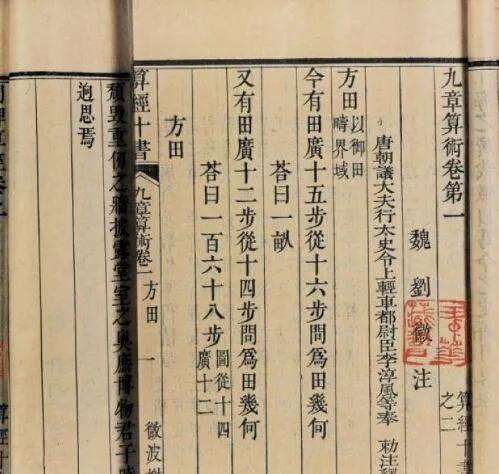 九章算術卷第一
魏 劉徽 注
算經十書之二
唐朝議大夫行太史令上輕車都尉臣李淳風等奉 敕注釋
方田 以御田疇界域
今有田廣十五步從十六步問爲田幾何
荅曰一畝
又有田廣十二步從十四步問爲田幾何
荅曰一百六十八步 圖從十四廣十二
方田
算經十書 九章算術卷一 方田 一 微波
頹毀重
之
披露堂室之奥
博物君子時
迥思焉
算經十